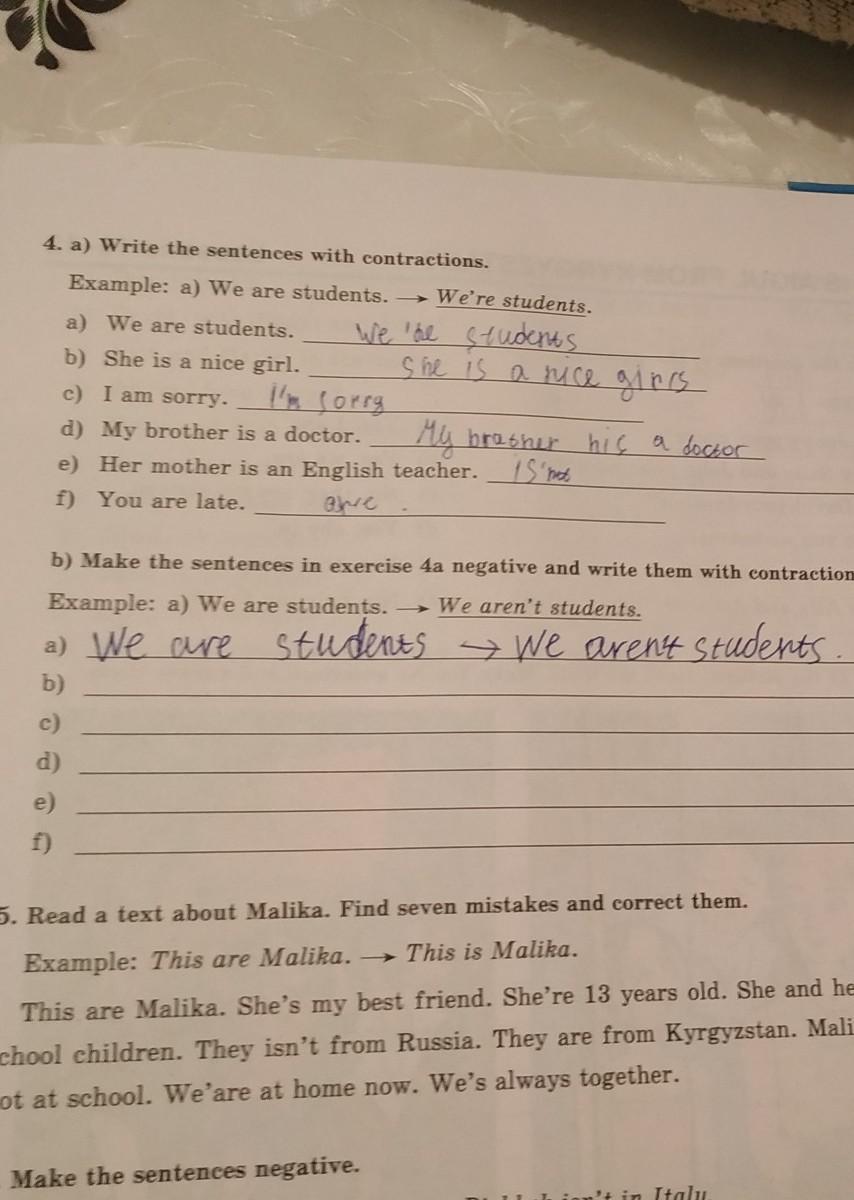 4. a) Write the sentences with contractions.
Example: a) We are students. → We're students.
a) We are students. We 're students
b) She is a nice girl. She is a nice
c) I am sorry. I'm sorry
d) My brother is a doctor. My brather his a doctor
e) Her mother is an English teacher. IS'not
f) You are late.
b) Make the sentences in exercise 4a negative and write them with contraction
Example: a) We are students. → We aren't students.
a) We are students → We aren't students.
b)
c)
d)
e)
f)
5. Read a text about Malika. Find seven mistakes and correct them.
Example: This are Malika. → This is Malika.
This are Malika. She's my best friend. She're 13 years old. She and he
chool children. They isn't from Russia. They are from Kyrgyzstan. Mali
ot at school. We'are at home now. We's always together.
Make the sentences negative.
isn't in Italy